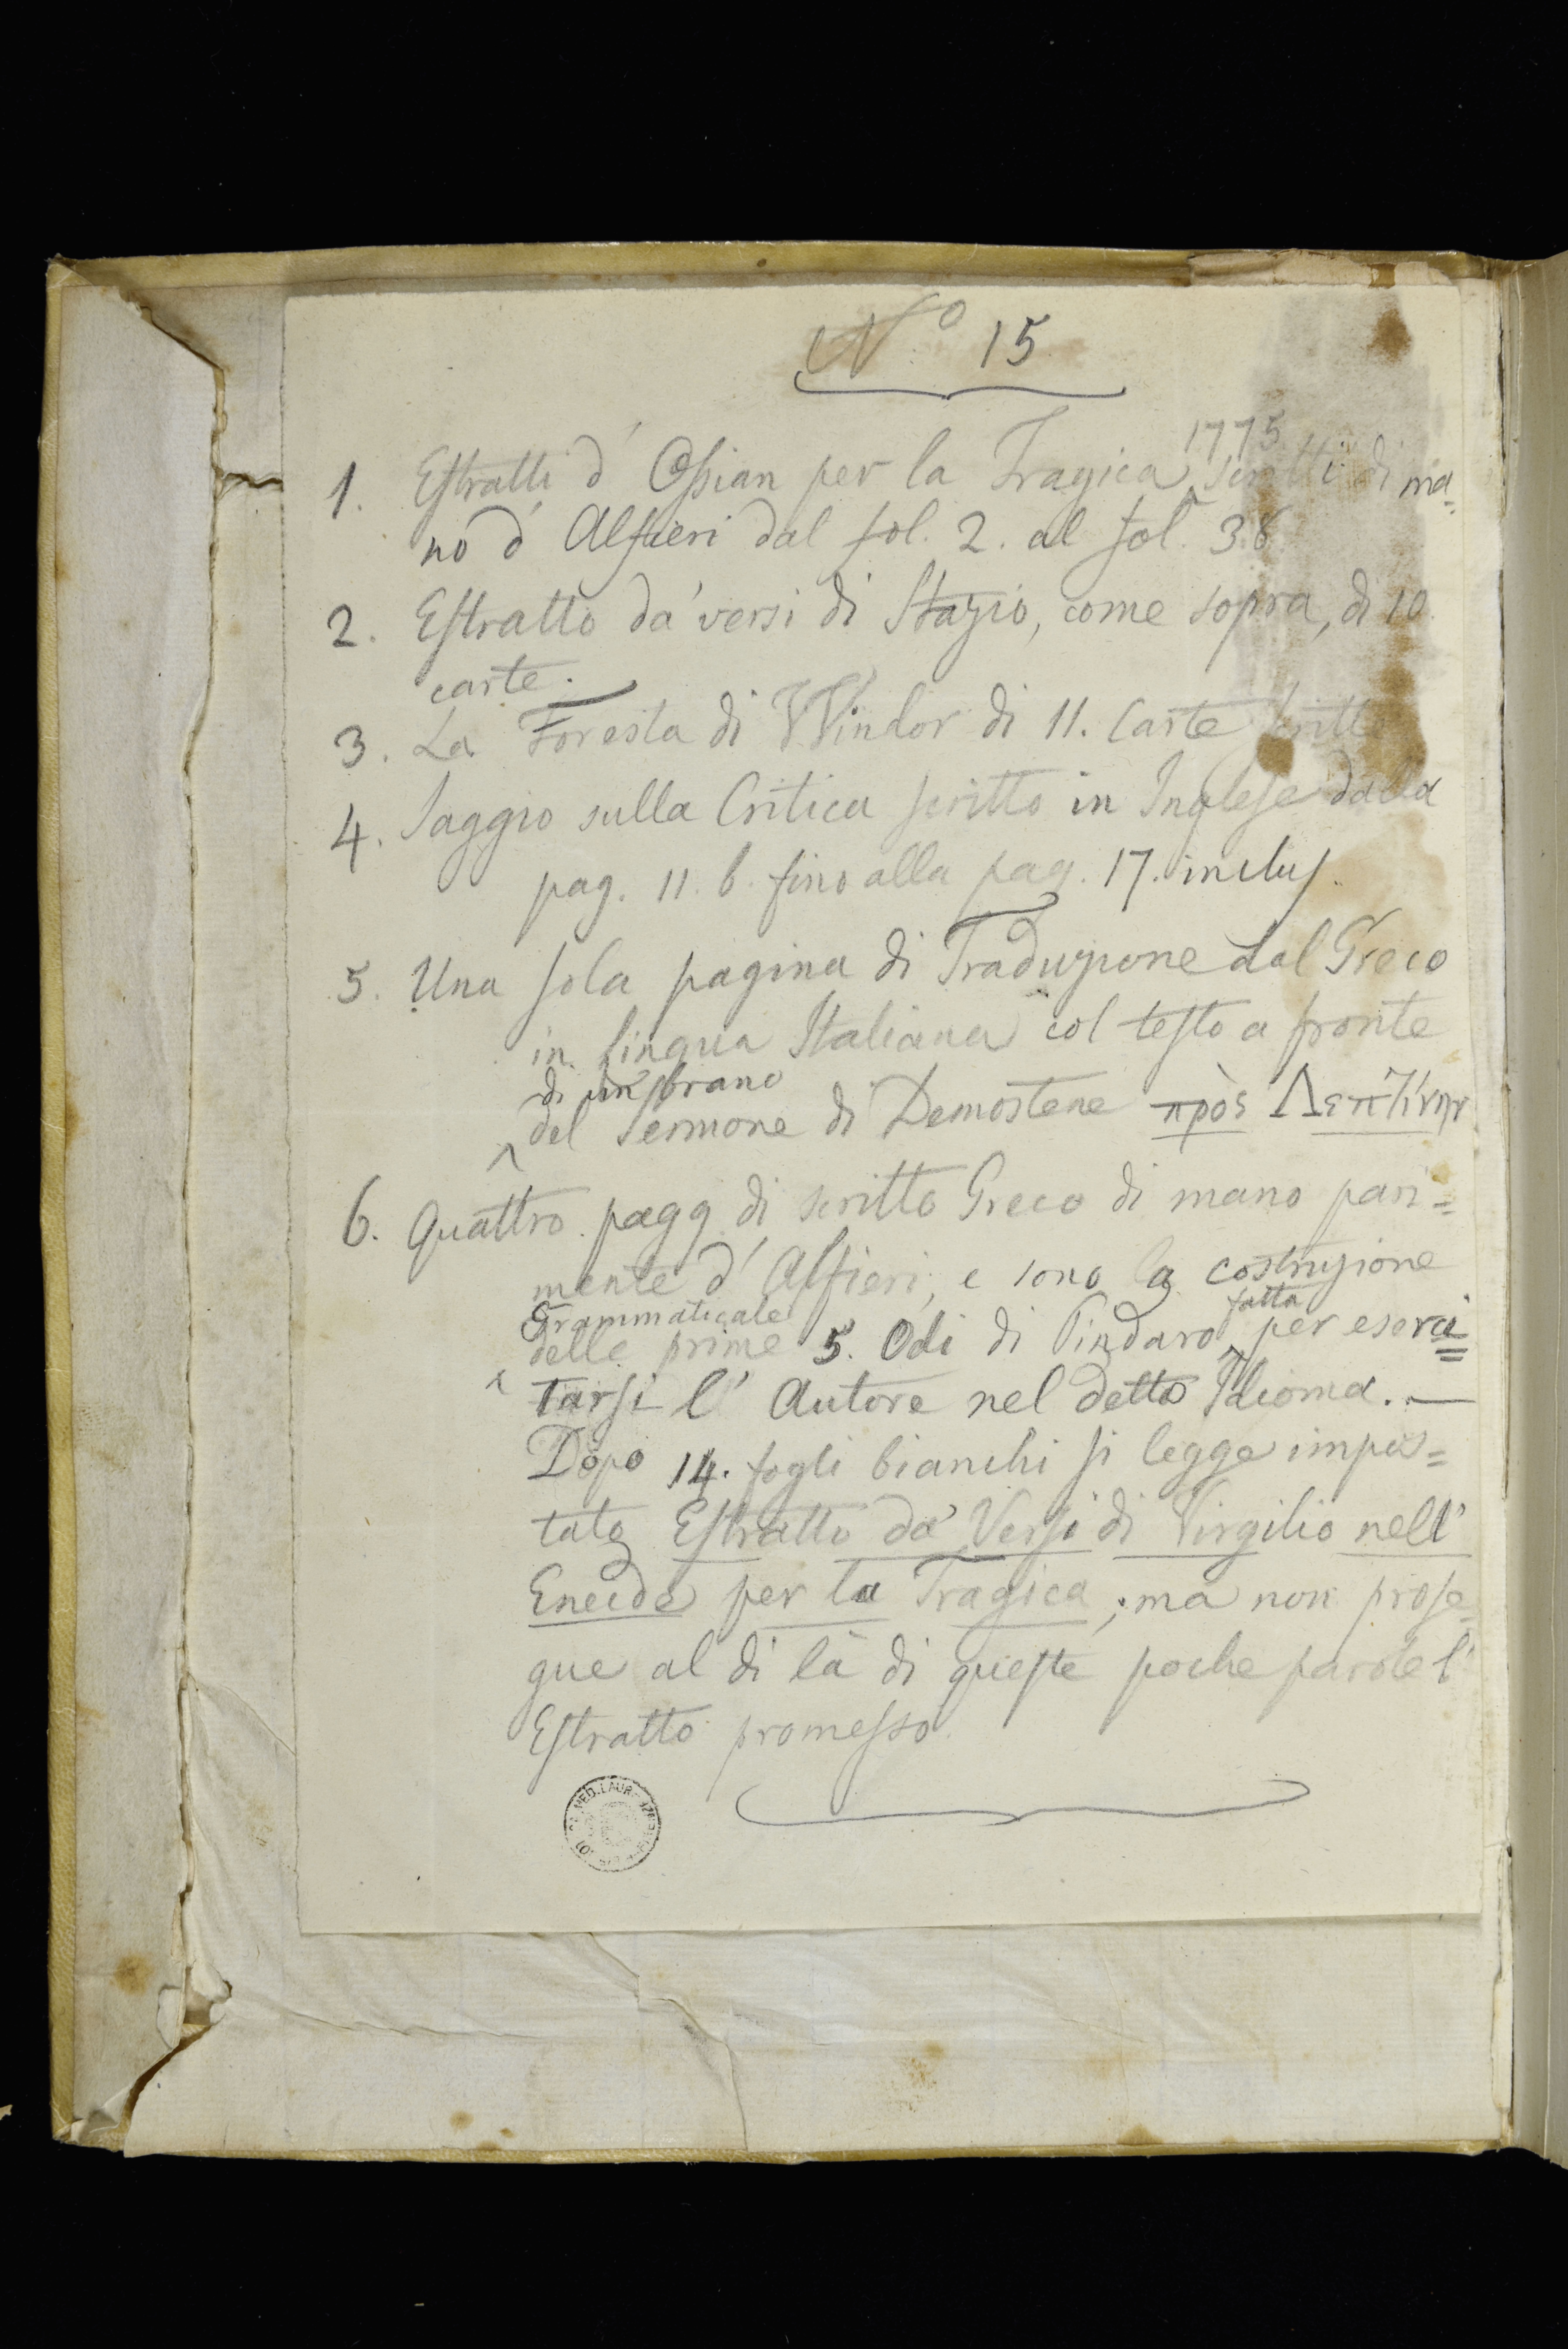 N.º 15
1775
1. Estratti d' Ossian per la Tragica scritti di ma=
no d' Alfieri dal fol. 2. al fol. 38
2. Estratto da' versi di Stazio, come sopra, di 10
carte.
3. La Foresta di VVindor di 11. Carte scritte
4. Saggio sulla Critica scritto in Inglese dalla
pag. 11. b. fino alla pag. 17. inclus.
5. Una sola pagina di Traduzione dal Greco
in lingua Italiana col testo a fronte
di un brano
del Sermone di Demostene πρὸς Λεπτίνην
6. Quattro pagg. di scritto Greco di mano pari=
mente d' Alfieri, e sono la costruzione
Grammaticale
fatta
delle prime 5. Odi di Pindaro per eserci=
tarsi l' Autore nel detto Idioma. —
Dopo 14. fogli bianchi si legge impos=
tato Estratto da' Versi di Virgilio nell'
Eneide per la Tragica; ma non prose=
gue al di là di queste poche parole l'
Estratto promesso.
MED. LAUR.